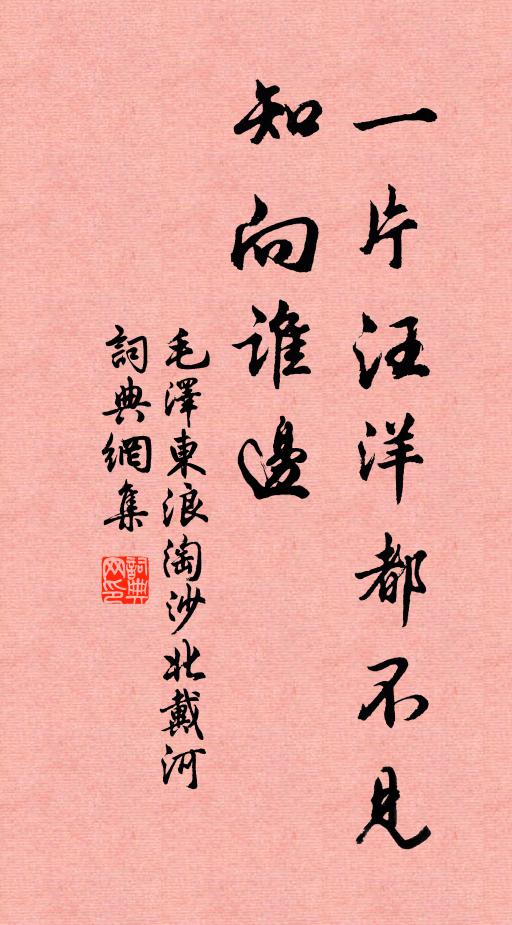 一片汪洋都不見
知向誰邊
毛澤東浪淘沙北戴河
詞典網集
詞典网印